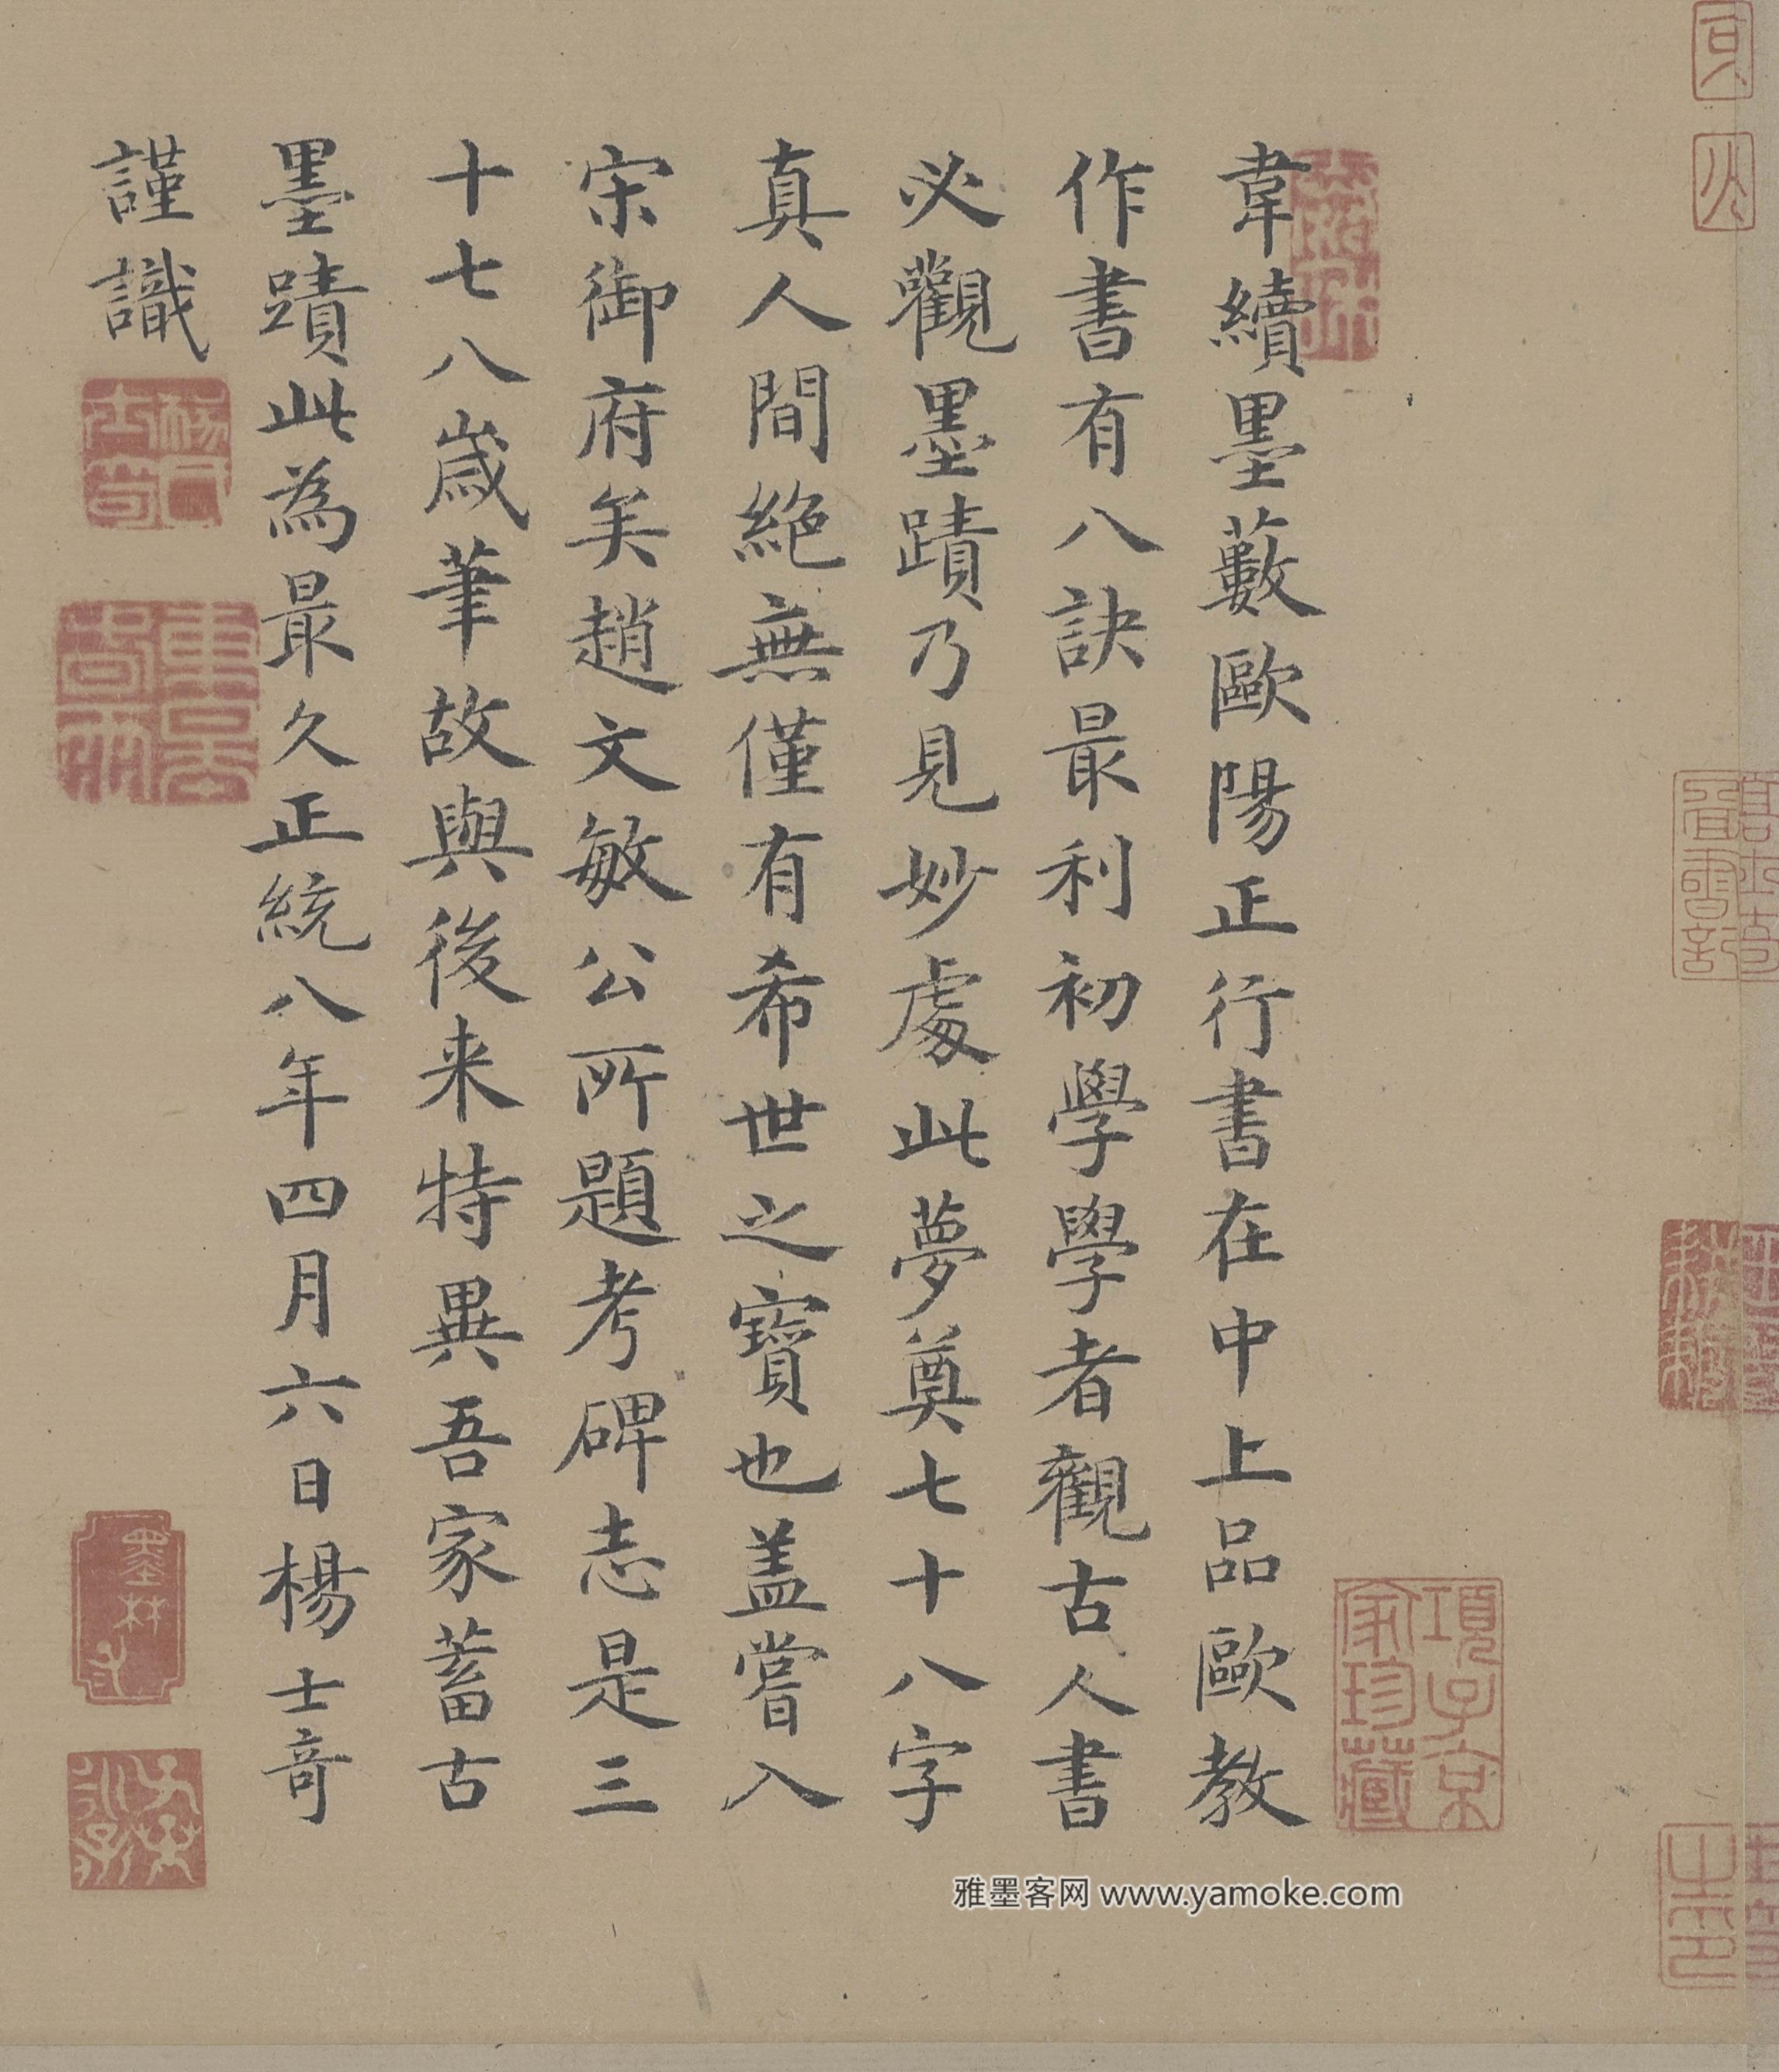 韋續墨藪歐陽正行書在中上品歐教
作書有八訣最利初學學者觀古人書
必觀墨蹟乃見妙處此夢奠七十八字
真人間絕無僅有希世之寶也盖嘗入
宋御府矣趙文敏公所題考碑志是三
十七八歲筆故與後来特異吾家蓄古
墨蹟此為最久正統八年四月六日楊士奇
謹識
項子京
家珍藏
墨林
雅墨客网 www.yamoke.com